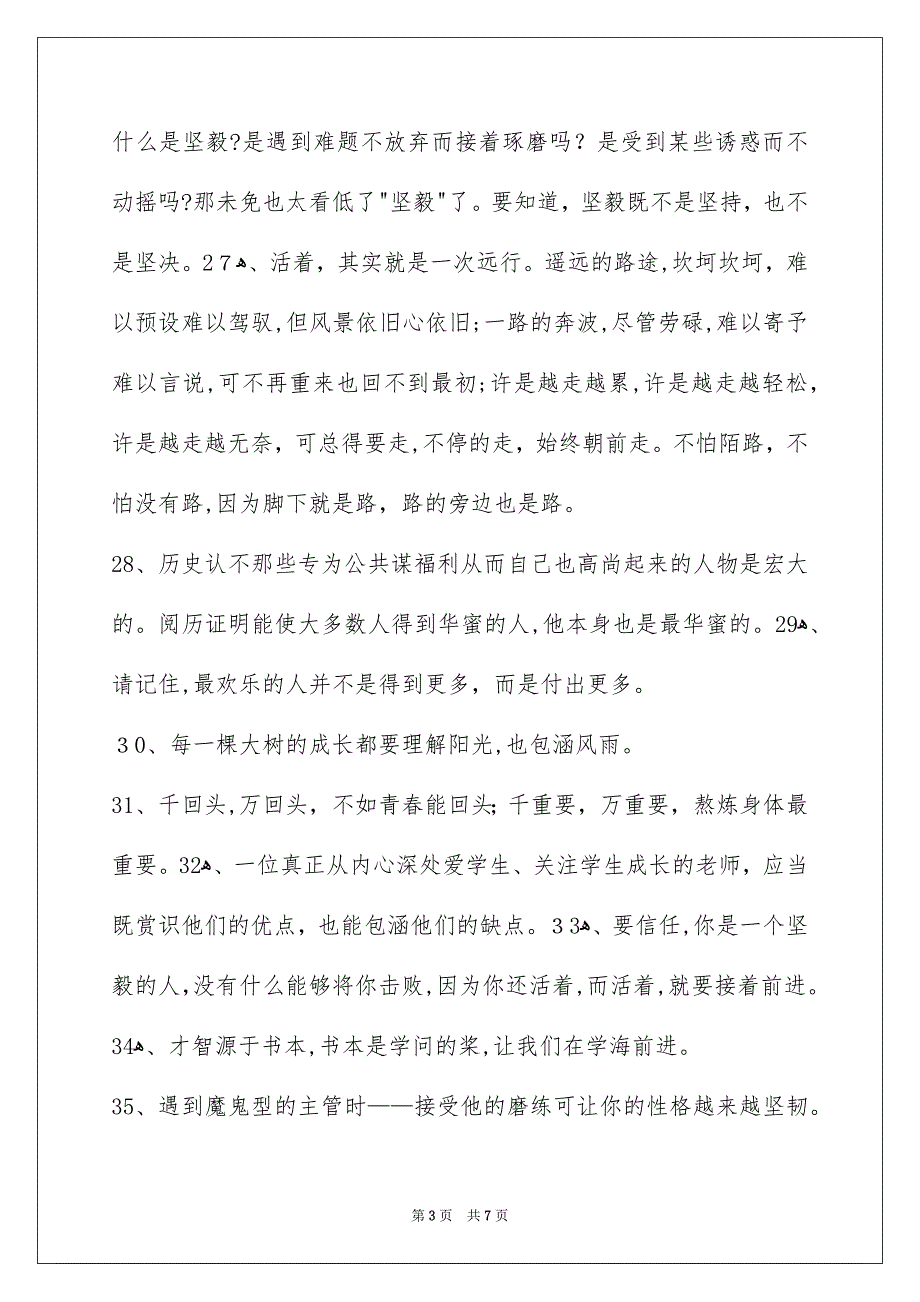 什么是坚毅?是遇到难题不放弃而接着琢磨吗？是受到某些诱惑而不
动摇吗?那未免也太看低了"坚毅"了。要知道，坚毅既不是坚持，也不
是坚决。２７ﻫ、活着，其实就是一次远行。遥远的路途,坎坷坎坷，难
以预设难以驾驭,但风景依旧心依旧;一路的奔波,尽管劳碌,难以寄予
难以言说,可不再重来也回不到最初;许是越走越累,许是越走越轻松，
许是越走越无奈，可总得要走,不停的走，始终朝前走。不怕陌路，不
怕没有路,因为脚下就是路，路的旁边也是路。
28、历史认不那些专为公共谋福利从而自己也高尚起来的人物是宏大
的。阅历证明能使大多数人得到华蜜的人,他本身也是最华蜜的。29ﻫ、
请记住,最欢乐的人并不是得到更多，而是付出更多。
３0、每一棵大树的成长都要理解阳光,也包涵风雨。
31、千回头,万回头，不如青春能回头;千重要，万重要，熬炼身体最
重要。32ﻫ、一位真正从内心深处爱学生、关注学生成长的老师，应当
既赏识他们的优点，也能包涵他们的缺点。３3ﻫ、要信任,你是一个坚
毅的人,没有什么能够将你击败,因为你还活着,而活着,就要接着前进。
34ﻫ、才智源于书本,书本是学问的桨,让我们在学海前进。
35、遇到魔鬼型的主管时——接受他的磨练可让你的性格越来越坚韧。
第 3 页 共 7 页